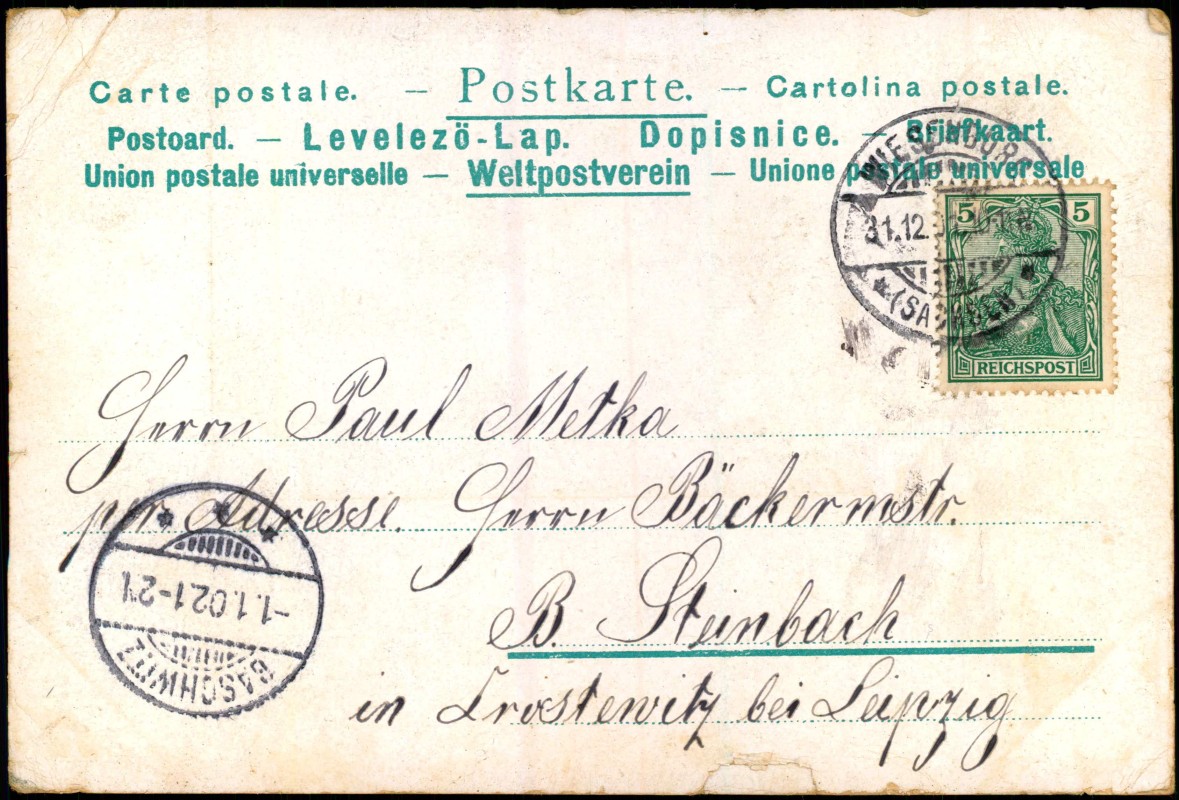 Carte postale. — Postkarte. — Cartolina postale.
Postoard. — Levelezö-Lap. Dopisnice. — Briefkaart.
Union postale universelle — Weltpostverein — Unione postale universale
WIESENBURG
31.12.
(SACHSEN)
5 5
REICHSPOST
Herrn Paul Metka
per Adresse. Herrn Bäckermstr.
B. Steinbach
in Crostewitz bei Leipzig
-1.1.02.1-2N.
GASCHWITZ